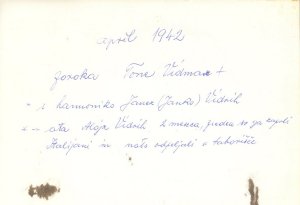 april 1942
poroka Tone Vidmar +
" s harmoniko Janez (Janko) Vidrih
" - ata Alojz Vidrih 2 meseca, preden so ga zaprli
Italijani in nato odpeljali v taborišče